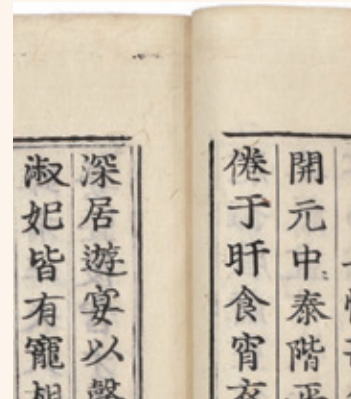 開元中泰階平
倦于旰食宵衣
深居遊宴以聲
淑妃皆有寵相